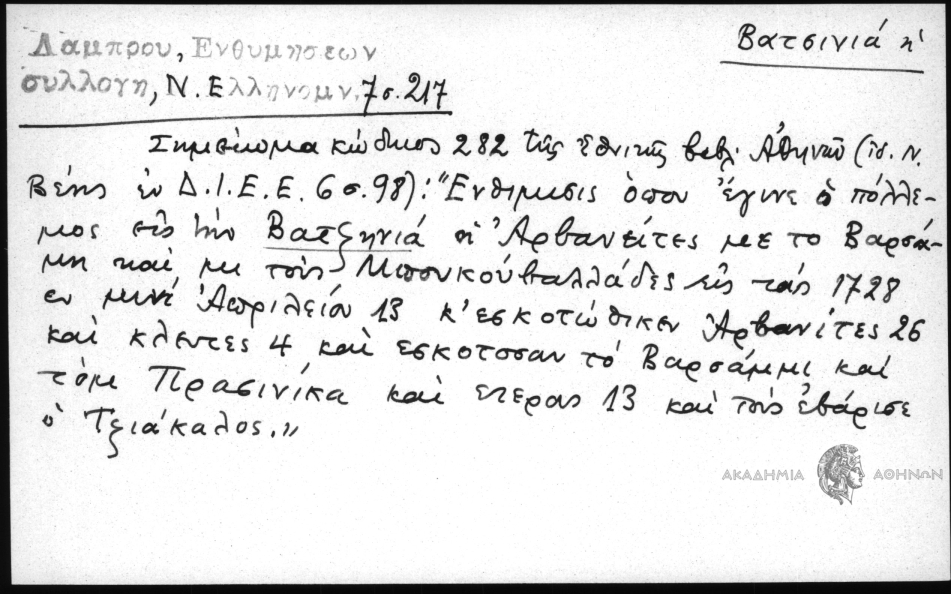 Βατσινιά η'
Λαμπρου, Ενθυμησεων
συλλογη, Ν. Ελληνομν. 7 σ. 217
Σημείωμα κώδικος 282 τῆς ἐθνικῆς βιβλ. Ἀθηνῶν (ἰδ. Ν.
Βέης ἐν Δ.Ι.Ε.Ε. 6 σ. 98): "Ενθιμισις ὁπου ἔγινε ὁ πόλλε-
μος εἰς τὴν Βατζηνιά οἱ Ἀρβανεῖτες με το Βαρσά-
μη καὶ με τοὺς Μπουκουβαλλάδες εἰς τὰς 1728
εν μινὶ Ἀπριλείου 13 κ' εσκοτώθικεν Ἀρβανίτες 26
καὶ κλεντες 4 καὶ εσκοτοσαν τὸ Βαρσάμμι καὶ
Πρασινίκα καὶ ετερας 13 καὶ τοὺς ἐβάρισε
ὁ Τζιάκαλος."
ΑΚΑΔΗΜΙΑ ΑΘΗΝΩΝ